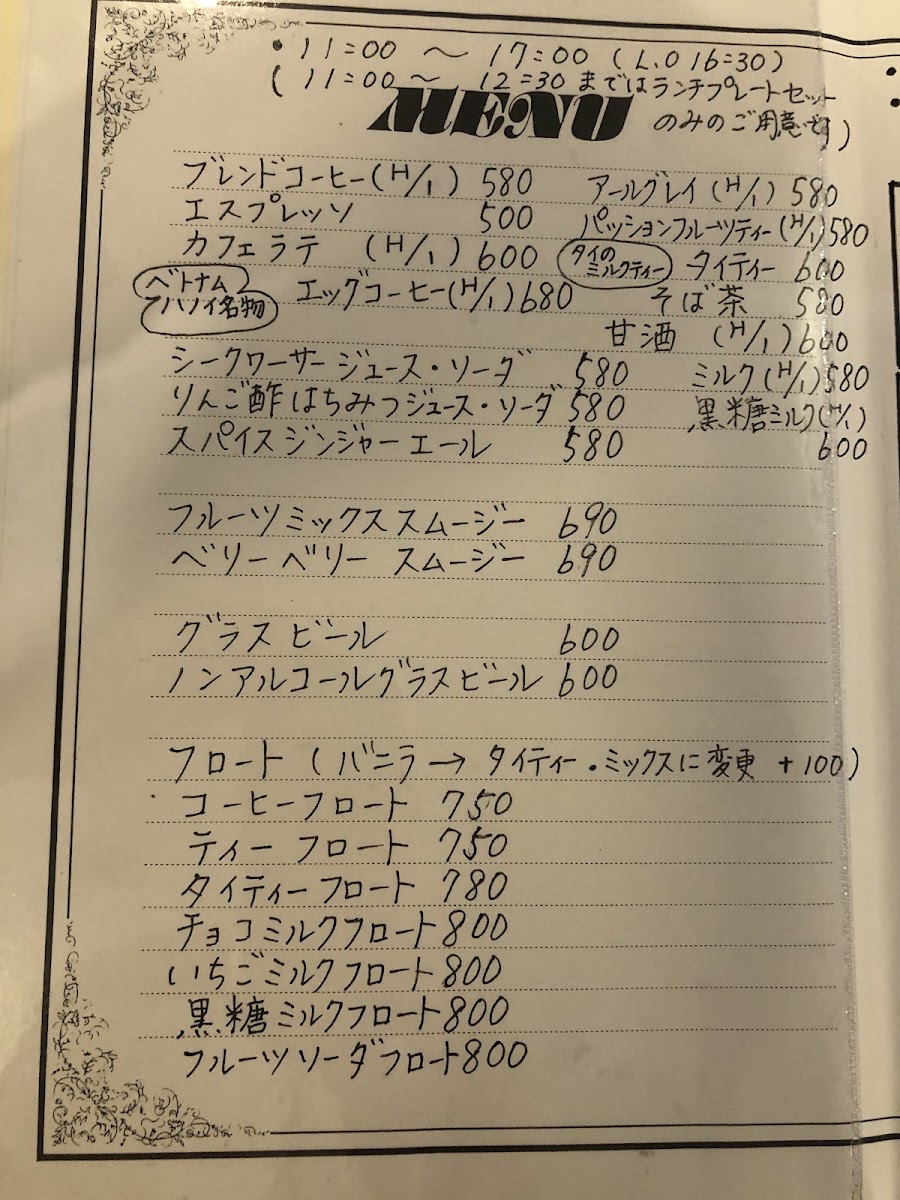 ・11:00 〜 17:00 (L.O 16:30)
(11:00〜 12:30 まではランチプレートセット
のみのご用意です)
MENU
ブレンドコーヒー(H/I) 580
エスプレッソ 500
カフェラテ (H/I) 600
ベトナム
ハノイ名物
エッグコーヒー(H/I) 680
シークワーサージュース・ソーダ 580
りんご酢はちみつジュース・ソーダ 580
スパイスジンジャーエール 580
アールグレイ(H/I) 580
パッションフルーツティー(H/I) 580
タイの
ミルクティー
タイティー 600
そば茶 580
甘酒 (H/I) 600
ミルク(H/I) 580
黒糖ミルク(H/I)
600
フルーツミックススムージー 690
ベリーベリー スムージー 690
グラスビール 600
ノンアルコールグラスビール 600
フロート (バニラ→ タイティー・ミックスに変更 +100)
コーヒーフロート 750
ティーフロート 750
タイティーフロート 780
チョコミルクフロート 800
いちごミルクフロート 800
黒糖ミルクフロート 800
フルーツソーダフロート 800